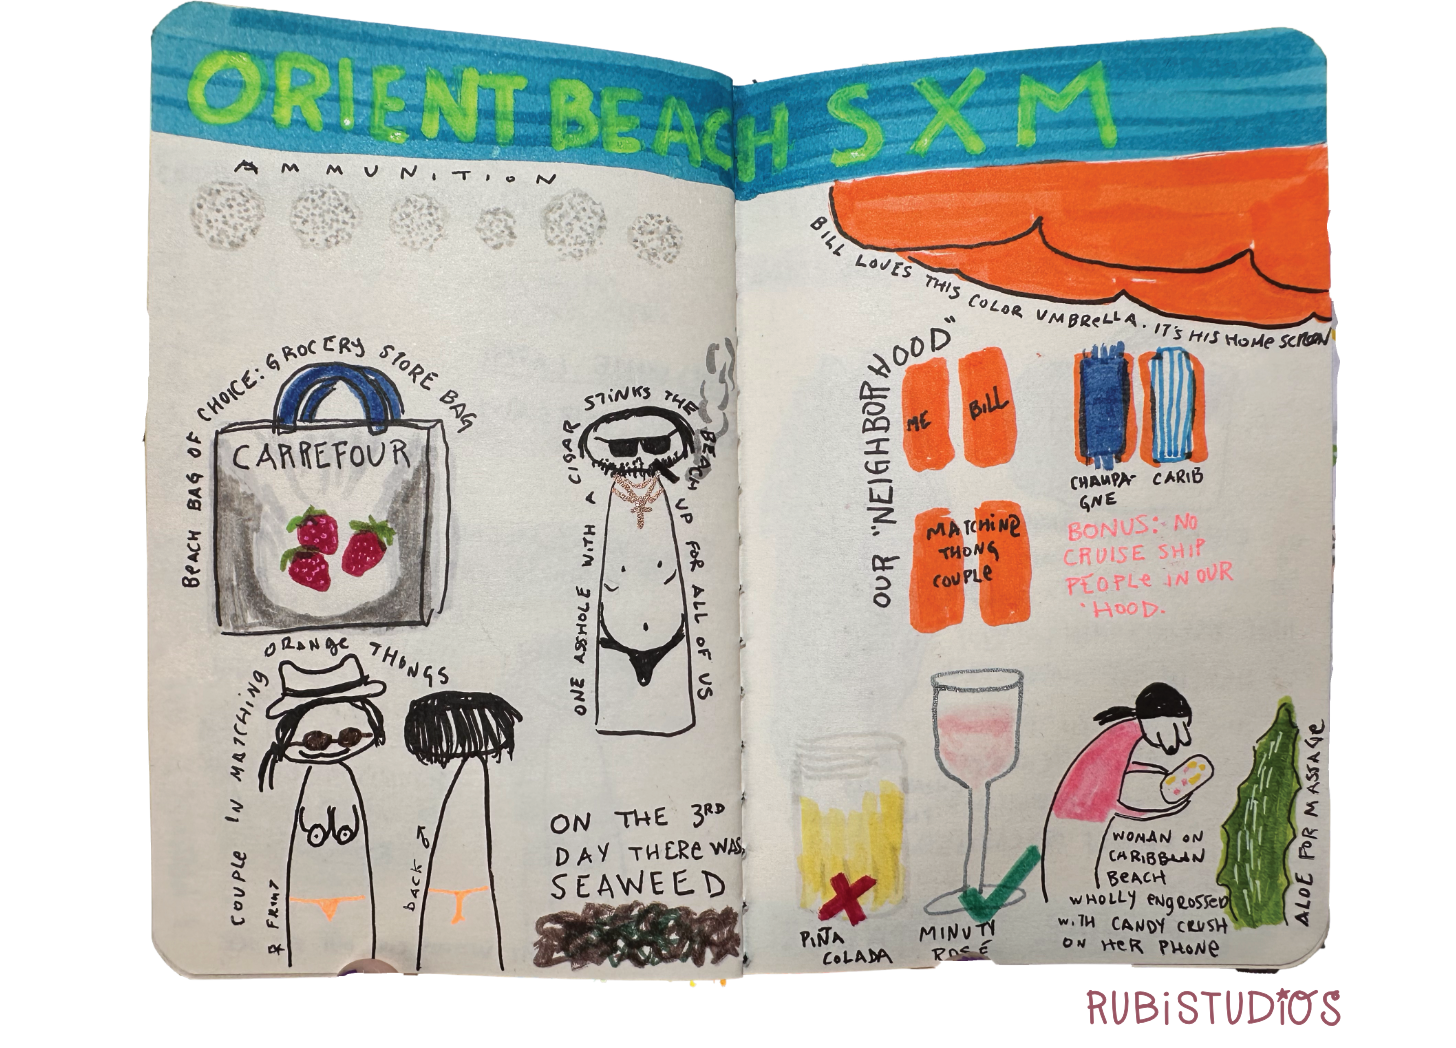 ORIENT BEACH SXM
AMMUNITION
BEACH BAG OF CHOICE: GROCERY STORE BAG
CARREFOUR
ONE ASSHOLE WITH A CIGAR STINKS THE BEACH UP FOR ALL OF US
COUPLE IN MATCHING ORANGE THONGS
FRONT
back
ON THE 3RD
DAY THERE WAS
SEAWEED
BILL LOVES THIS COLOR UMBRELLA. IT'S HIS HOME SCREEN
OUR "NEIGHBORHOOD"
ME
BILL
CHAMPA-
GNE
CARIB
MATCHING
THONG
COUPLE
BONUS: NO
CRUISE SHIP
PEOPLE IN OUR
'HOOD.
PIÑA
COLADA
MINUTY
ROSÉ
WOMAN ON
CARIBBEAN
BEACH
WHOLLY ENGROSSED
WITH CANDY CRUSH
ON HER PHONE
ALOE FOR MASSAGE
RUBiSTUDiOS